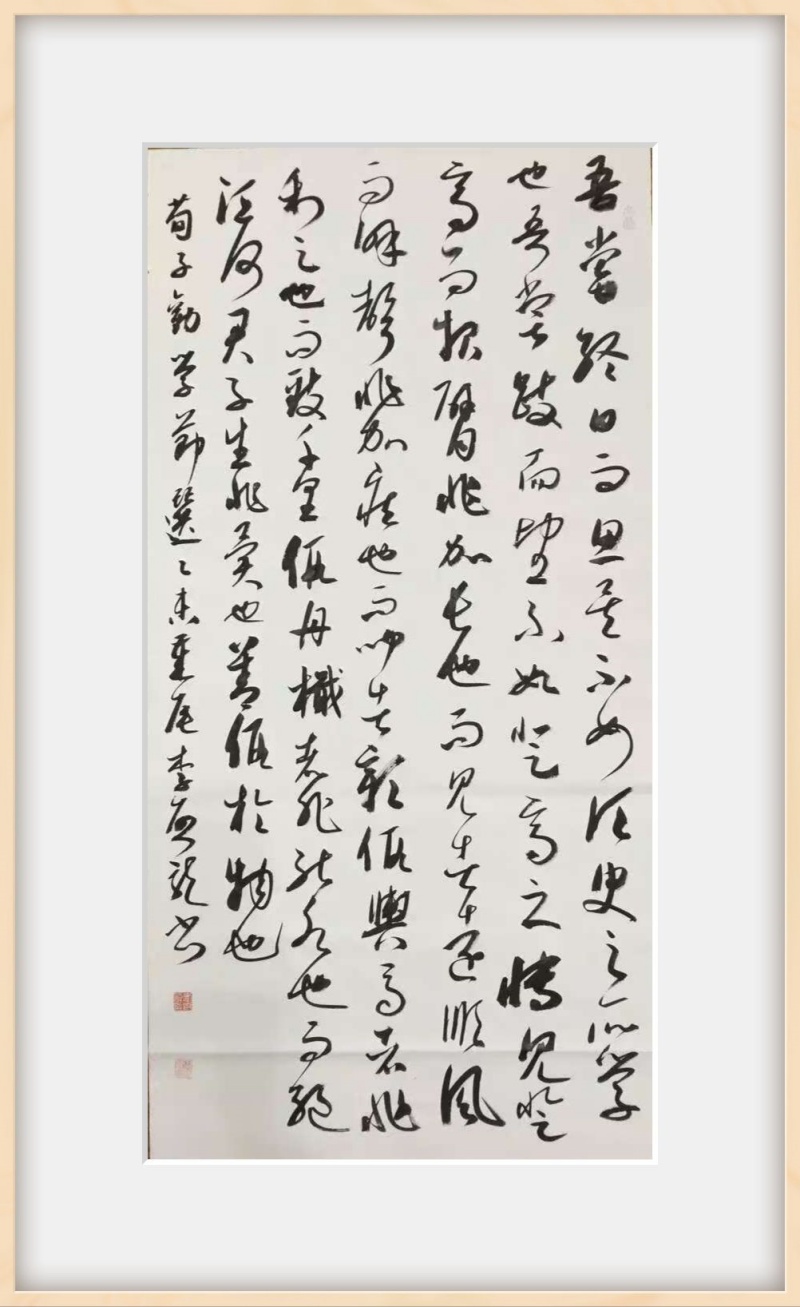 吾嘗終日而思矣不如須臾之所學
也吾嘗跂而望不如登高之博見登
高而招臂非加長也而見者遠順風
而呼聲非加疾也而聞者彰假輿馬者非
利足也而致千里假舟檝者非能水也而絕
江河君子生非異也善假於物也
荀子勸學節選乙未尾李龍書